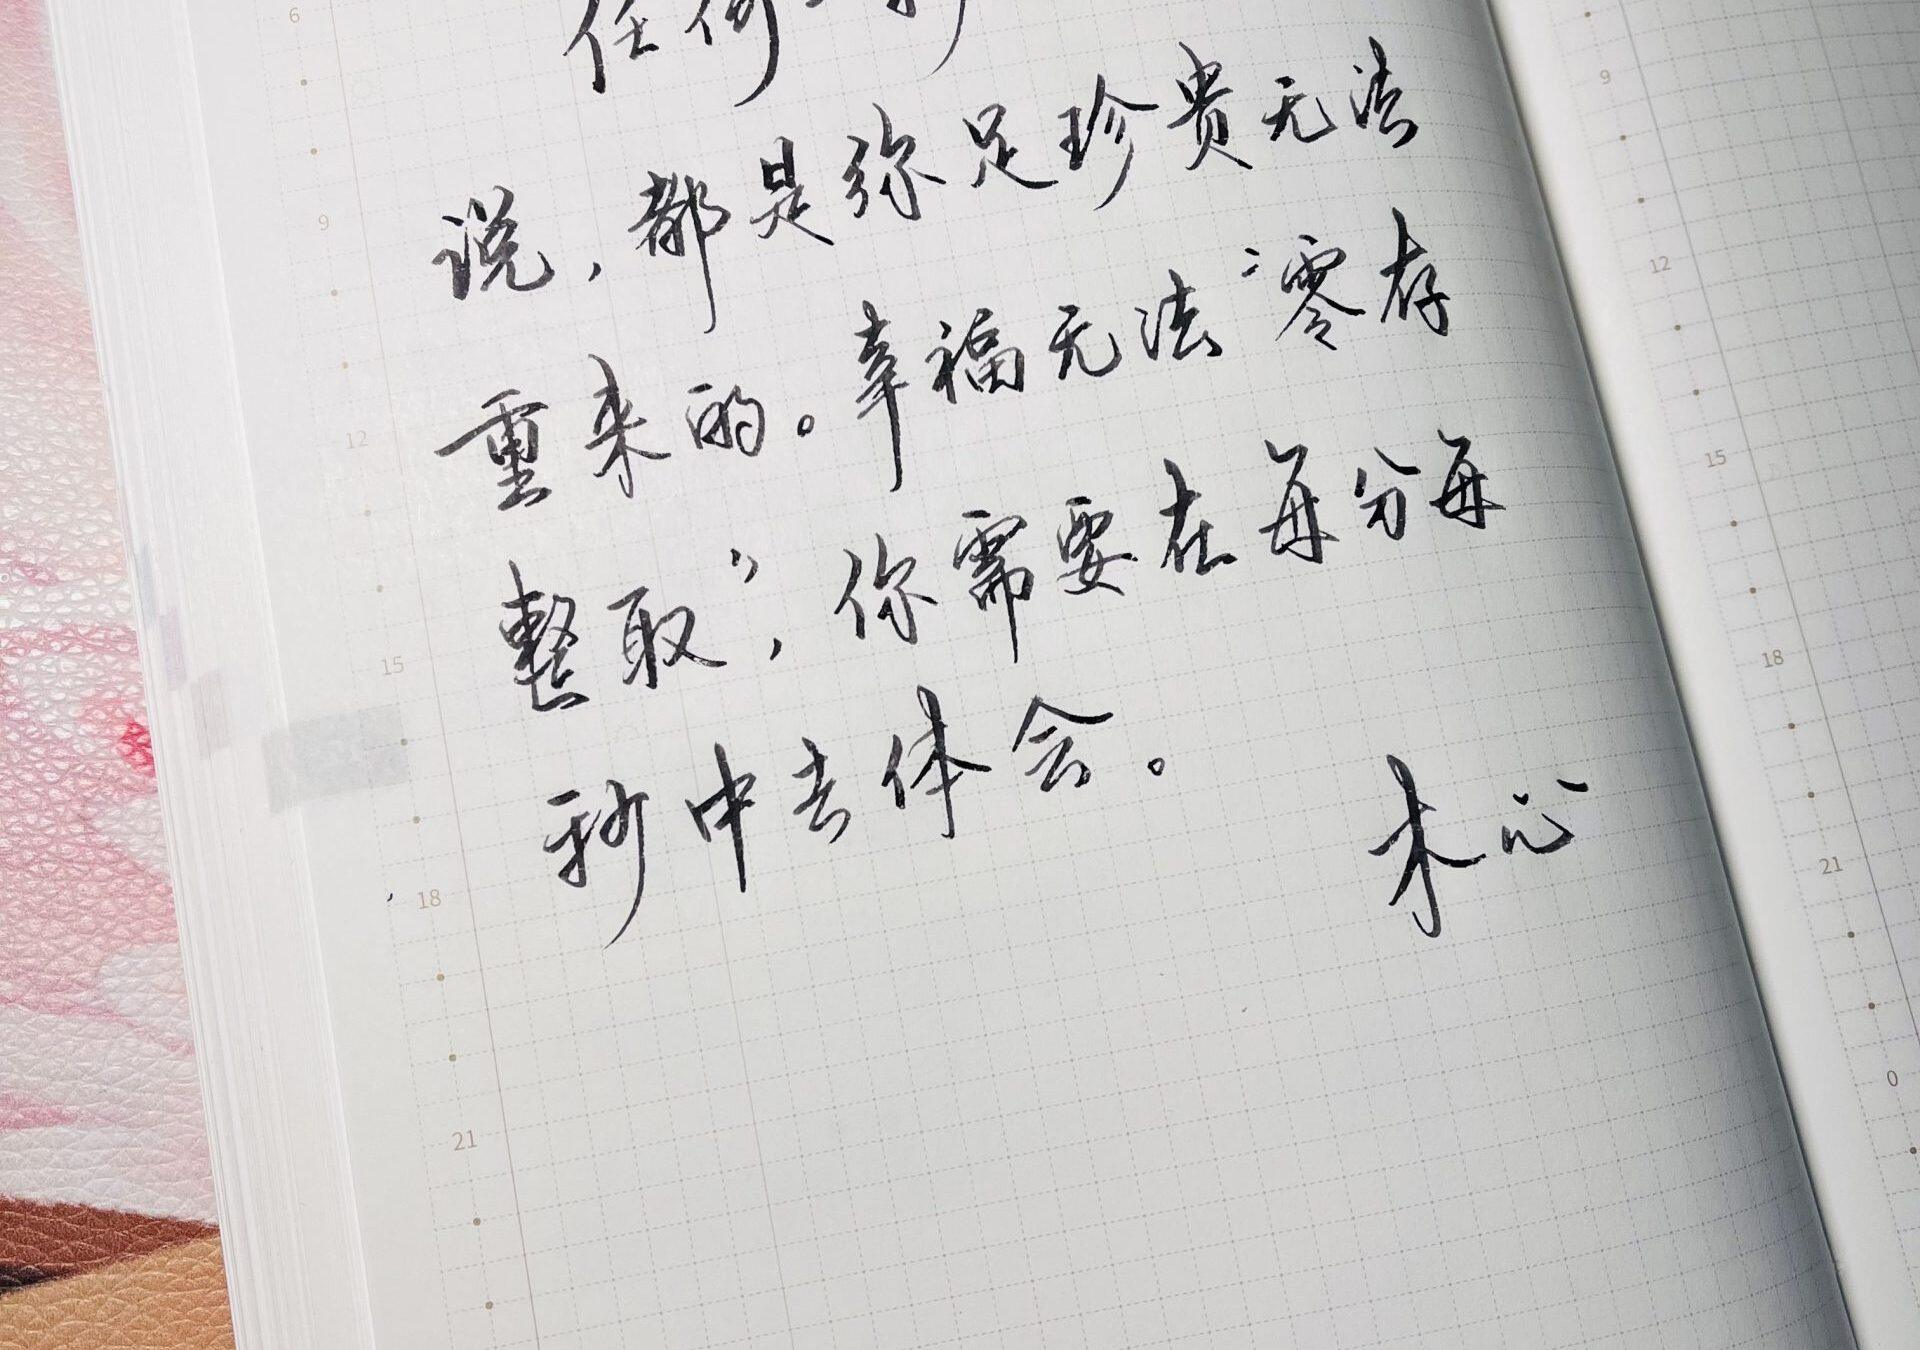 任何一秒
说，都是弥足珍贵无法
重来的。幸福无法“零存
整取”，你需要在每分每
秒中去体会。
木心
6
9
12
15
18
21
9
12
15
18
21
0